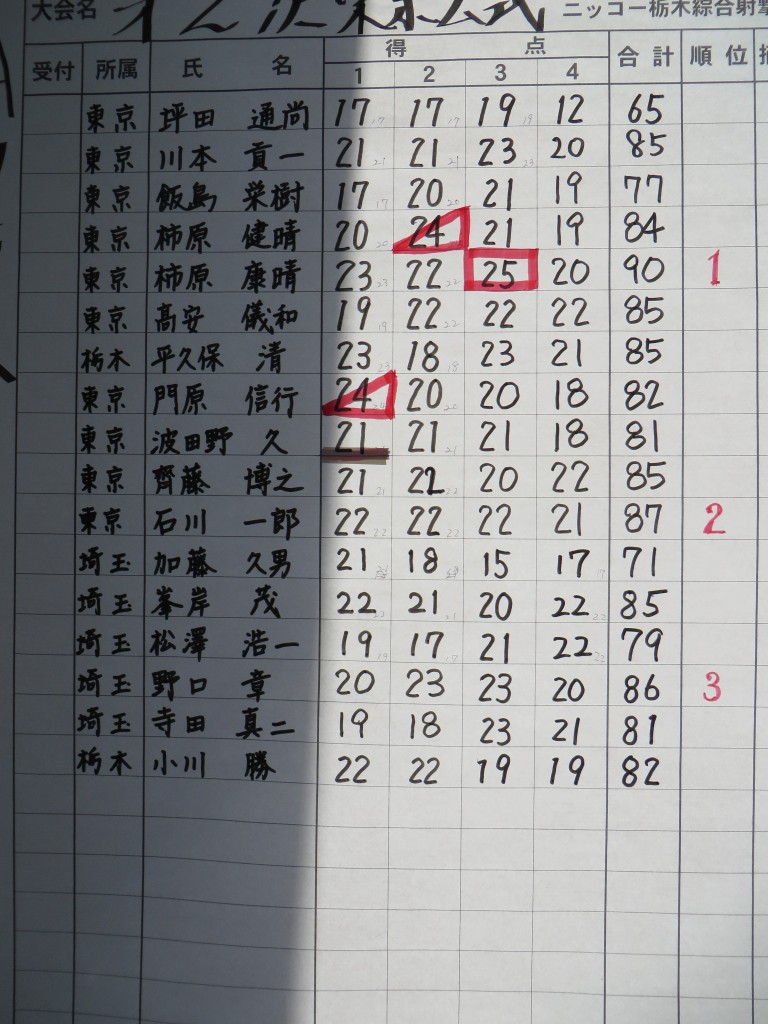 大会名 東京公式 ニッコー栃木綜合射撃
得 点
受付 所属 氏 名 1 2 3 4 合計 順位
東京 坪田 通尚 17 17 19 12 65
東京 川本 貢一 21 21 23 20 85
東京 飯島 栄樹 17 20 21 19 77
東京 柿原 健晴 20 24 21 19 84
東京 柿原 康晴 23 22 25 20 90 1
東京 高安 儀和 19 22 22 22 85
栃木 平久保 清 23 18 23 21 85
東京 門原 信行 24 20 20 18 82
東京 波田野 久 21 21 21 18 81
東京 齊藤 博之 21 22 20 22 85
東京 石川 一郎 22 22 22 21 87 2
埼玉 加藤 久男 21 18 15 17 71
埼玉 峯岸 茂 22 21 20 22 85
埼玉 松澤 浩一 19 17 21 22 79
埼玉 野口 章 20 23 23 20 86 3
埼玉 寺田 真二 19 18 23 21 81
栃木 小川 勝 22 22 19 19 82